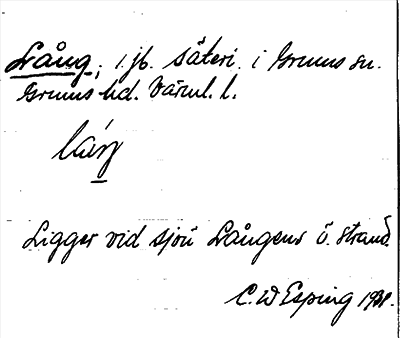 Lång, i jb. säteri. i Grums sn.
Grums hd. Värml. l.
låŋ
Ligger vid sjön Långens ö. strand.
C. W Esping 1931.